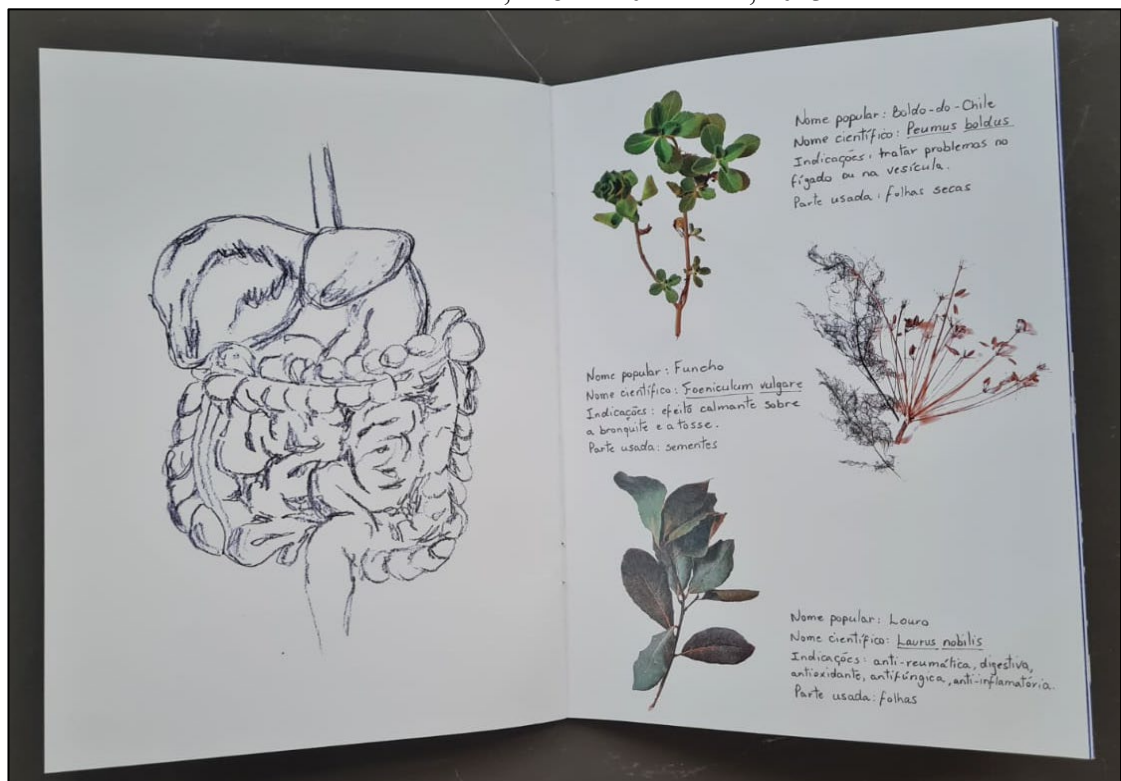 Nome popular: Boldo-do-Chile
Nome científico: Peumus boldus
Indicações: tratar problemas no
fígado ou na vesícula.
Parte usada: folhas secas
Nome popular: Funcho
Nome científico: Foeniculum vulgare
Indicações: efeito calmante sobre
a bronquite e a tosse.
Parte usada: sementes
Nome popular: Louro
Nome científico: Laurus nobilis
Indicações: anti-reumática, digestiva,
antioxidante, antifúngica, anti-inflamatória.
Parte usada: folhas